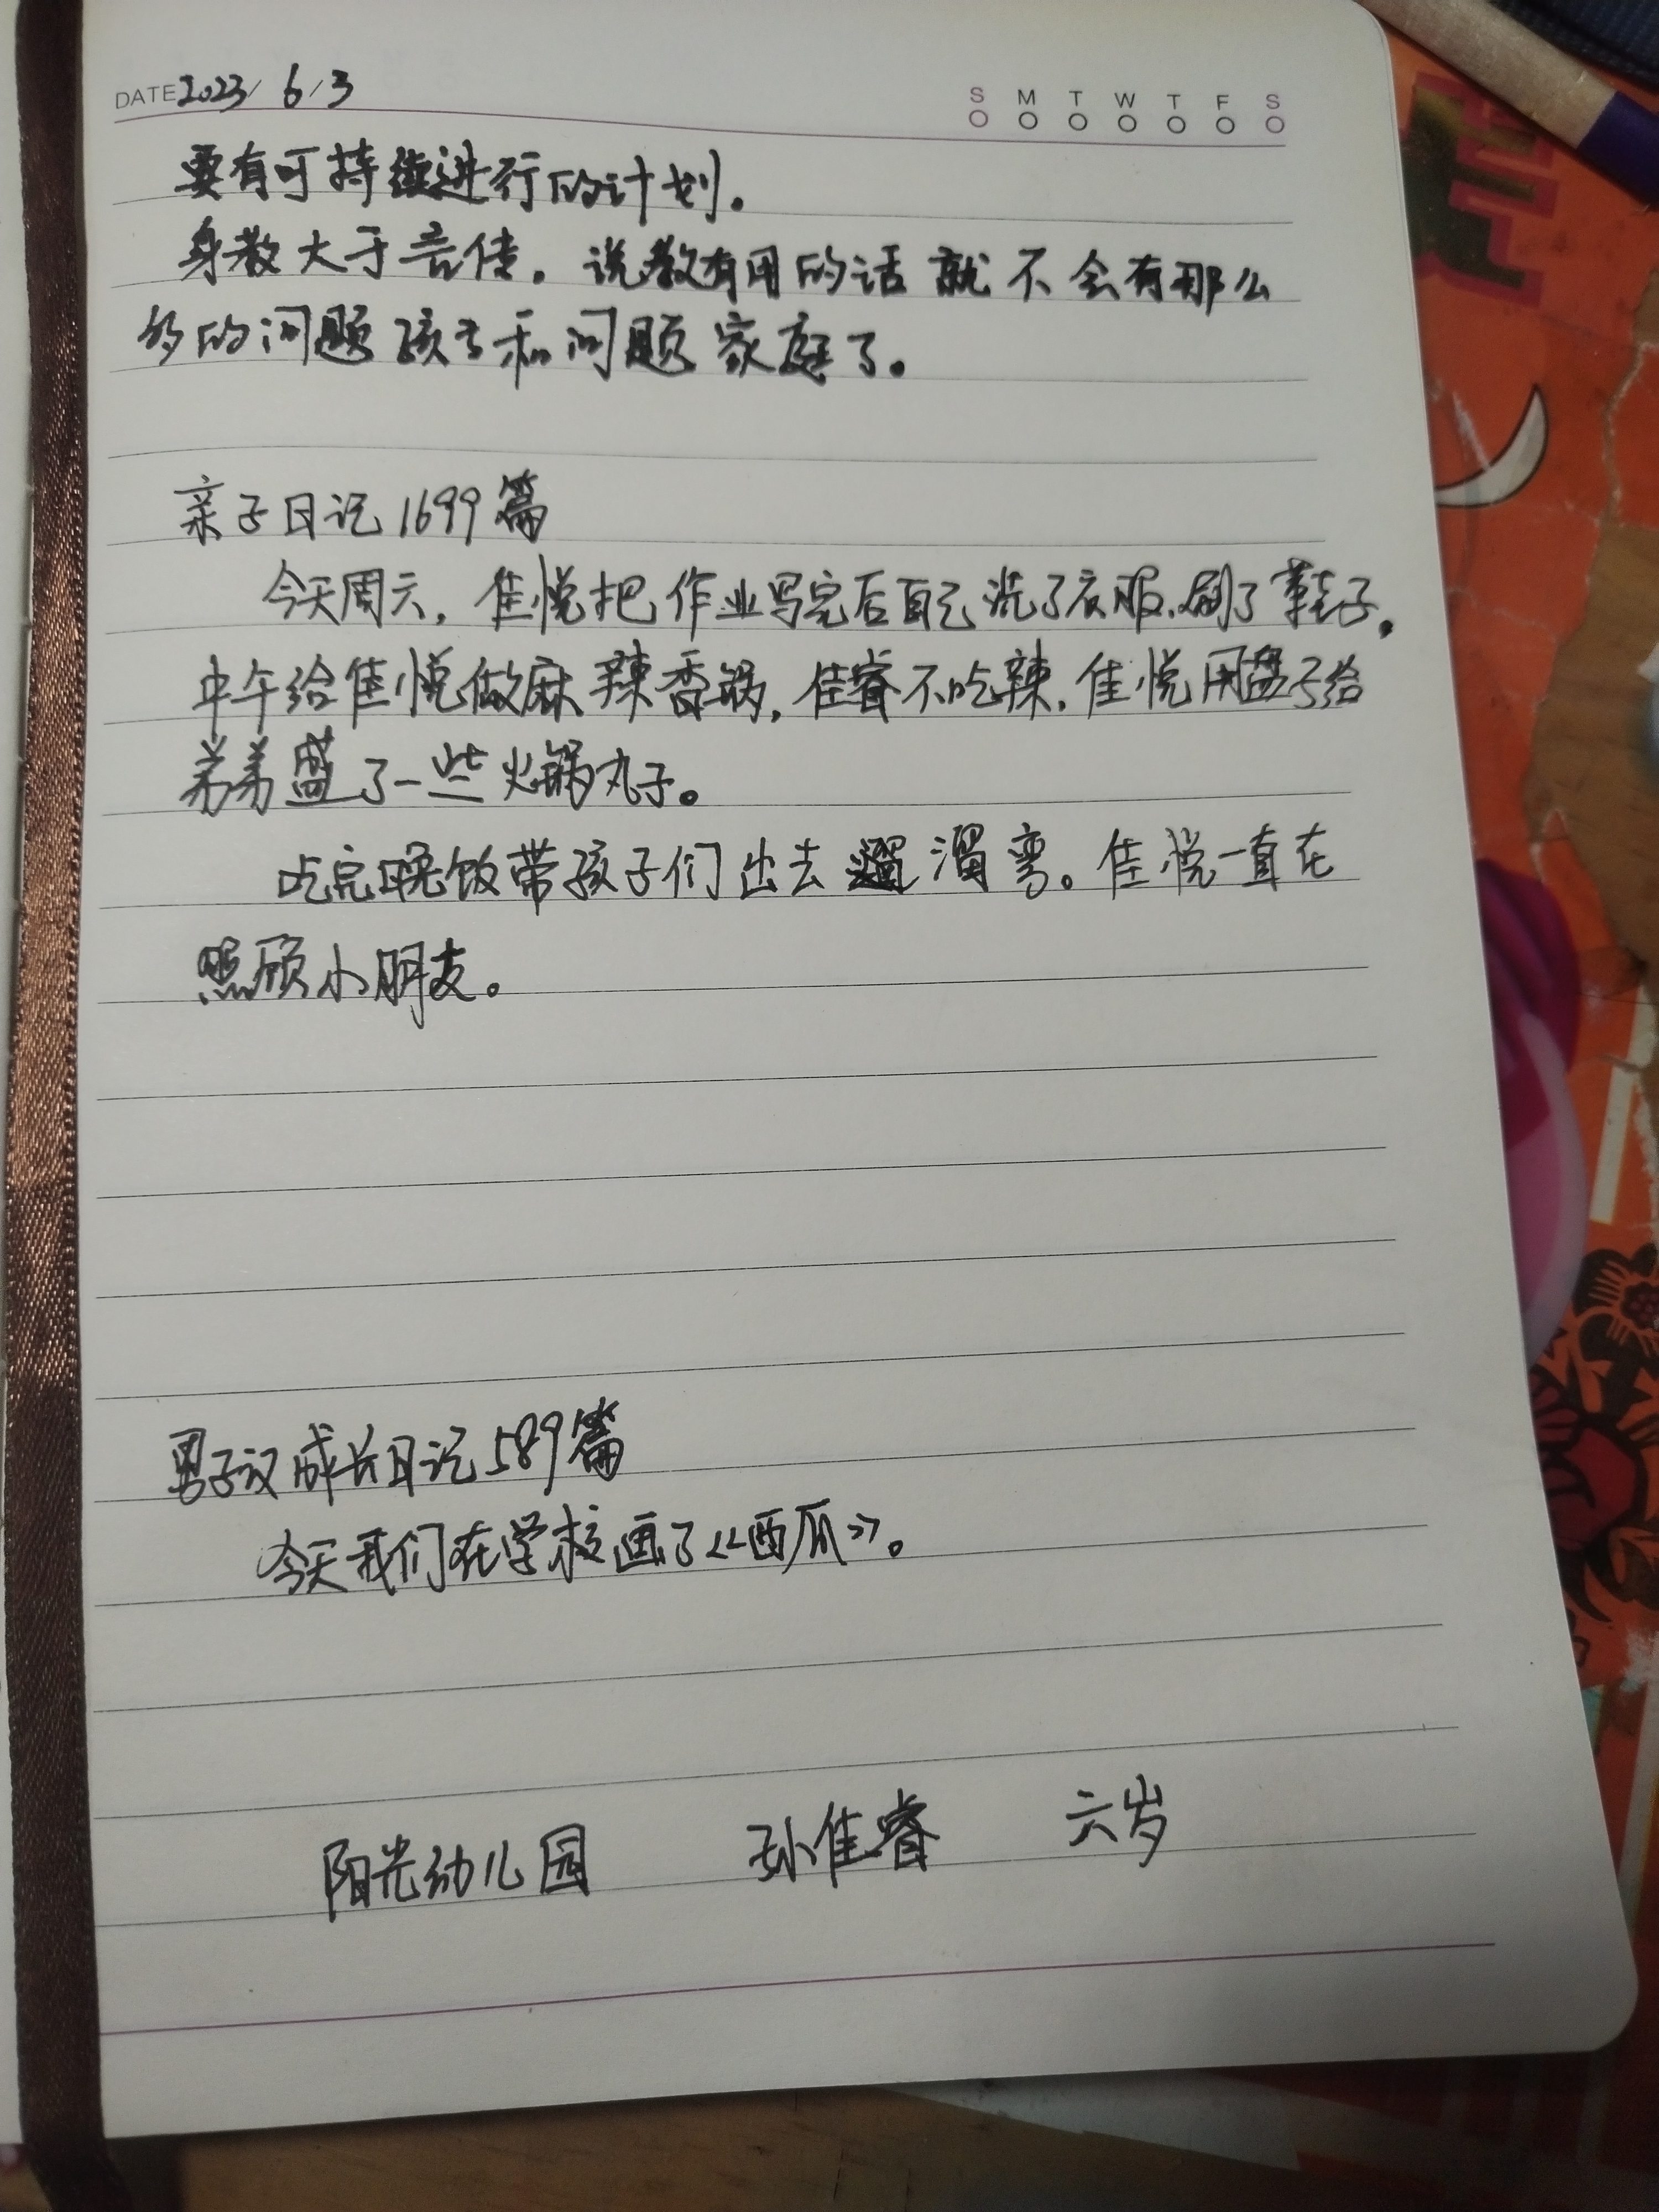 DATE 2023/6/3
S M T W T F S
要有可持续进行的计划。
身教大于言传。说教有用的话就不会有那么
多的问题孩子和问题家庭了。
亲子日记1699篇
今天周六，佳悦把作业写完后自己洗了衣服、刷了鞋子。
中午给佳悦做麻辣香锅，佳睿不吃辣，佳悦用盘子给
弟弟盛了一些火锅丸子。
吃完晚饭带孩子们出去溜弯。佳悦一直在
照顾小朋友。
男子汉成长日记589篇
今天我们在学校画了《西瓜》。
阳光幼儿园 孙佳睿 六岁